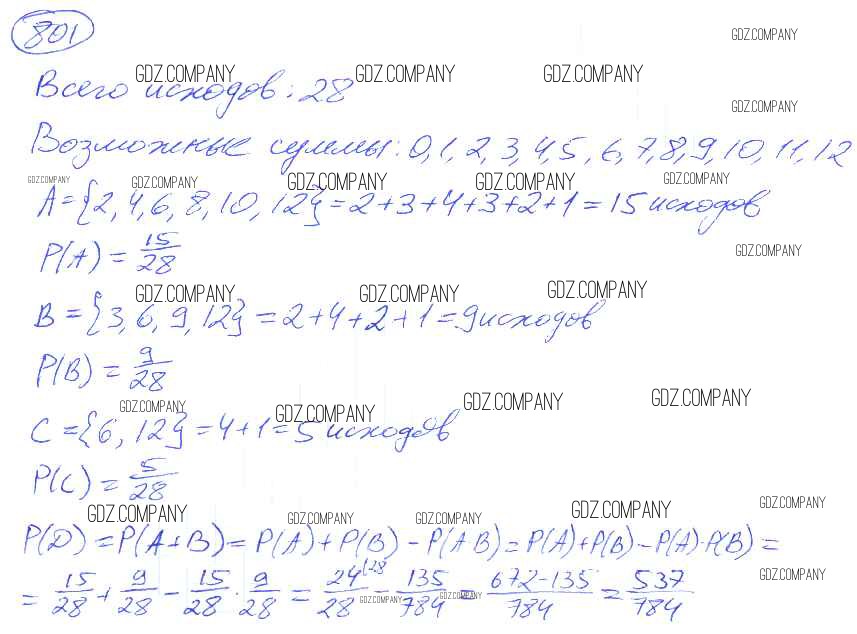 801
GDZ.COMPANY
GDZ.COMPANY GDZ.COMPANY GDZ.COMPANY
Всего исходов: 28
GDZ.COMPANY
Возможные суммы: 0, 1, 2, 3, 4, 5, 6, 7, 8, 9, 10, 11, 12
GDZ.COMPANY GDZ.COMPANY GDZ.COMPANY GDZ.COMPANY GDZ.COMPANY
A = {2, 4, 6, 8, 10, 12} = 2+3+4+3+2+1 = 15 исходов
P(A) = 15/28
GDZ.COMPANY
GDZ.COMPANY GDZ.COMPANY GDZ.COMPANY
B = {3, 6, 9, 12} = 2+4+2+1 = 9 исходов
P(B) = 9/28
GDZ.COMPANY GDZ.COMPANY GDZ.COMPANY GDZ.COMPANY
C = {6, 12} = 4+1 = 5 исходов
P(C) = 5/28
GDZ.COMPANY GDZ.COMPANY GDZ.COMPANY GDZ.COMPANY GDZ.COMPANY
P(D) = P(A+B) = P(A) + P(B) - P(AB) = P(A) + P(B) - P(A)·P(B) =
= 15/28 + 9/28 - 15/28 · 9/28 = 24/28 (28 - 135/784 = 672-135/784 = 537/784
GDZ.COMPANY GDZ.COMPANY GDZ.COMPANY